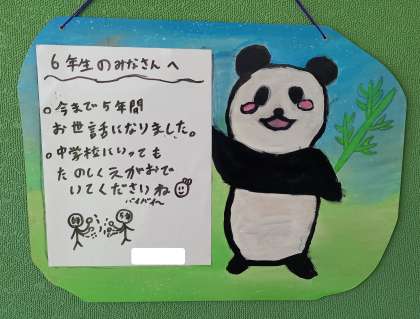 6年生のみなさんへ
○今まで5年間
お世話になりました。
○中学校にいっても
たのしくえがおで
いてくださいね
バイバイ〜